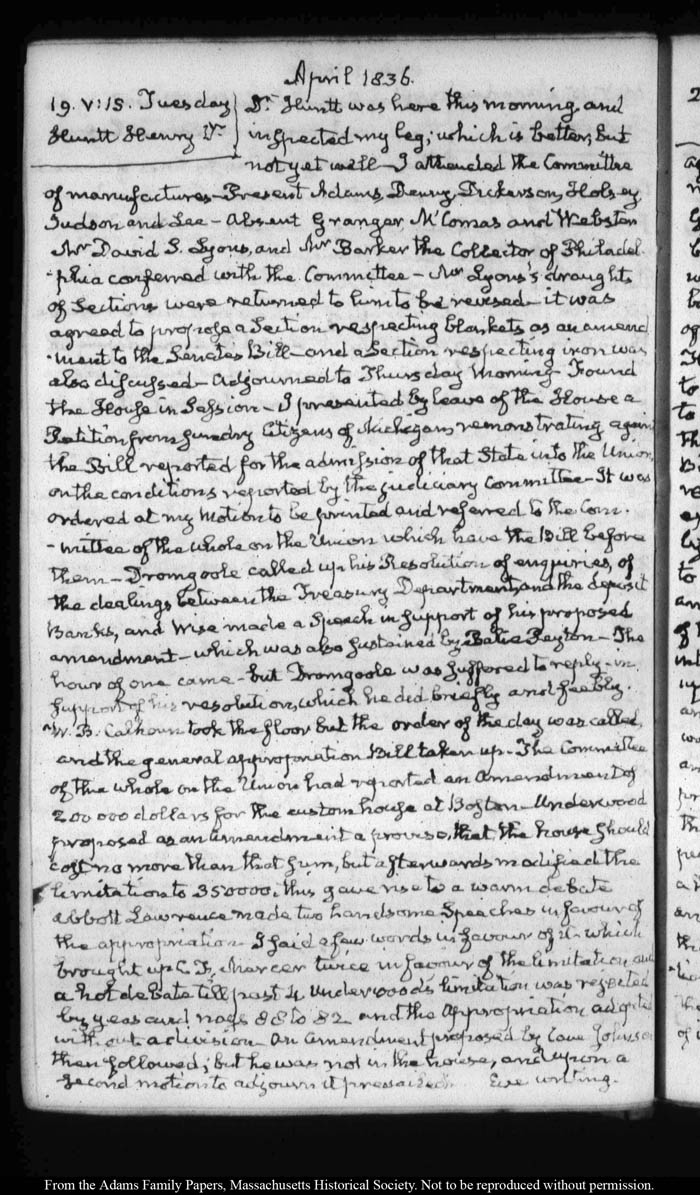 April 1836.
19. V:15. Tuesday
Huntt Henry Dr.
Dr. Huntt was here this morning, and
inspected my leg; which is better, but
not yet well— I attended the Committee
of manufactures— Present Adams, Denny, Dickerson, Halsey
Judson and Lee— Absent Granger, McComas and Webster
Mr David S. Lyons, and Mr Barker the Collector of Philadel-
-phia conferred with the Committee— Mr Lyons's draughts
of Sections were returned to him to be revised— it was
agreed to propose a Section respecting blankets as an amend
-ment to the Senate's Bill— and a Section respecting iron was
also discussed— Adjourned to Thursday Morning— Found
the House in Session— I presented by leave of the House a
Petition from sundry Citizens of Michigan, remonstrating again
the Bill reported for the admission of that State into the Union,
on the conditions reported by the judiciary Committee— It was
ordered at my Motion to be printed and referred to the Com-
-mittee of the whole on the Union which have the Bill before
them— Dromgoole called up his Resolution of enquiries, of
the dealings between the Treasury Department, and the deposit
Banks, and Wise made a Speech in support of his proposed
amendment— which was also sustained by Balie Peyton— The
hour of one came— but Dromgoole was suffered to reply— in
support of his resolution, which he did briefly and feebly.
W. B. Calhoun took the floor but the order of the day was called,
and the general appropriation Bill taken up— The Committee
of the whole on the Union had reported an Amendment of
200000 dollars for the custom house at Boston— Underwood
proposed as an amendment a proviso, that the house should
cost no more than that sum, but afterwards modified the
limitation to 350000, this gave rise to a warm debate
Abbott Lawrence made two handsome Speeches in favour of
the appropriation— I said a few words in favour of it— which
brought up C. F. Mercer twice in favour of the limitation and
a hot debate till past 4. Underwood's limitation was rejected
by yeas and nays 88 to 82 and the Appropriation adopted
without a division— An amendment proposed by Cave Johnson
then followed; but he was not in the house, and upon a
second motion to adjourn it prevailed. Eve writing.
From the Adams Family Papers, Massachusetts Historical Society. Not to be reproduced without permission.